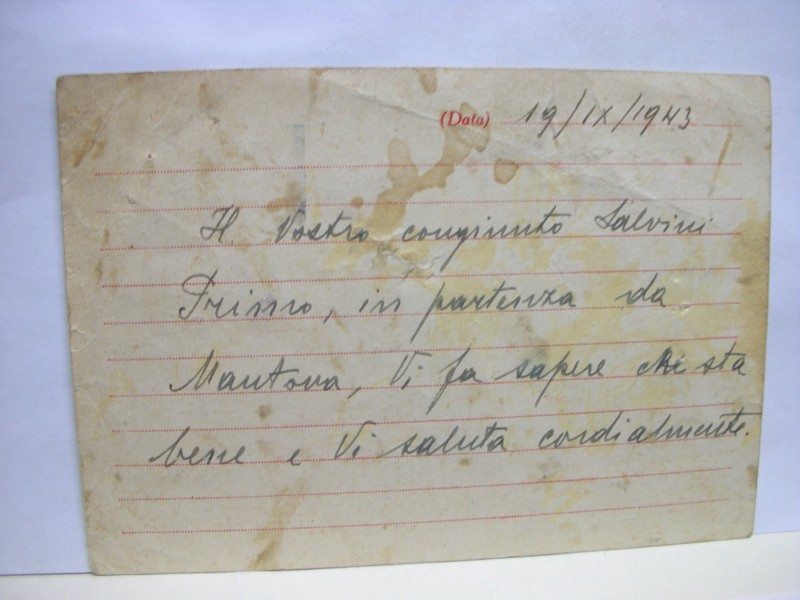 (Data) 19/IX/1943
Il Vostro congiunto Salvini
Primo, in partenza da
Mantova, Vi fa sapere che sta
bene e Vi saluta cordialmente.